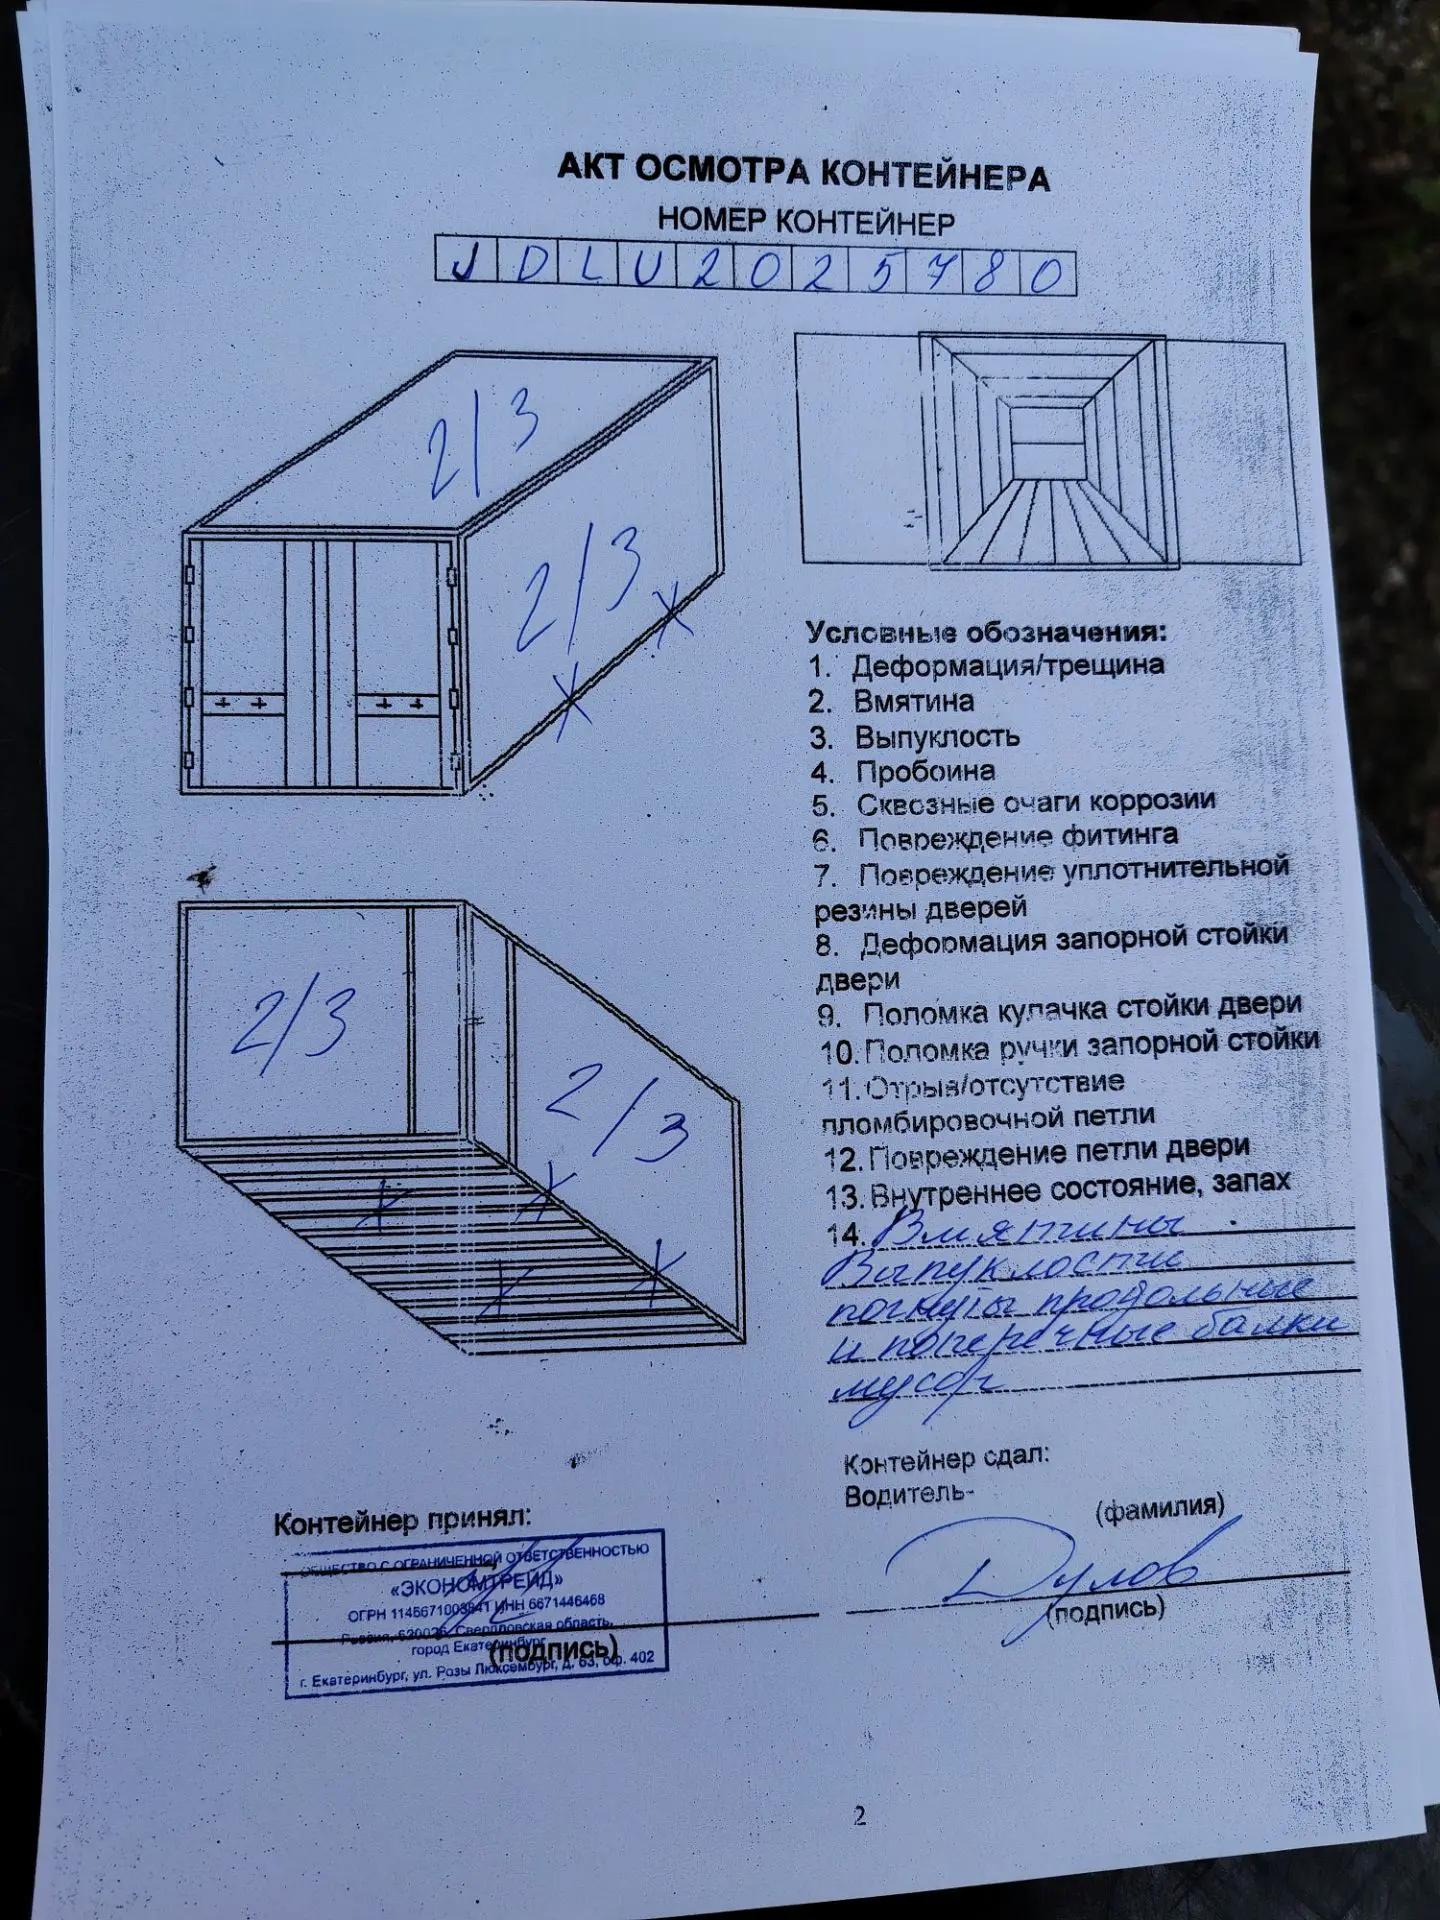 АКТ ОСМОТРА КОНТЕЙНЕРА
НОМЕР КОНТЕЙНЕР
JDLU2025780
2/3
2/3
Условные обозначения:
1. Деформация/трещина
2. Вмятина
3. Выпуклость
4. Пробоина
5. Сквозные очаги коррозии
6. Повреждение фитинга
7. Повреждение уплотнительной
резины дверей
8. Деформация запорной стойки
двери
9. Поломка кулачка стойки двери
10. Поломка ручки запорной стойки
11. Отрыв/отсутствие
пломбировочной петли
12. Повреждение петли двери
13. Внутреннее состояние, запах
14. Вмятины
Выпуклости
погнуты продольные
и поперечные балки
мусор
2/3
2/3
Контейнер сдал:
Водитель-
(фамилия)
Дулов
(подпись)
Контейнер принял:
ОБЩЕСТВО С ОГРАНИЧЕННОЙ ОТВЕТСТВЕННОСТЬЮ
«ЭКОНОМТРЕЙД»
ОГРН ИНН 6671446468
Россия, Свердловская область,
город Екатеринбург
(подпись)
г. Екатеринбург, ул. Розы Люксембург, д. 63, оф. 402
2